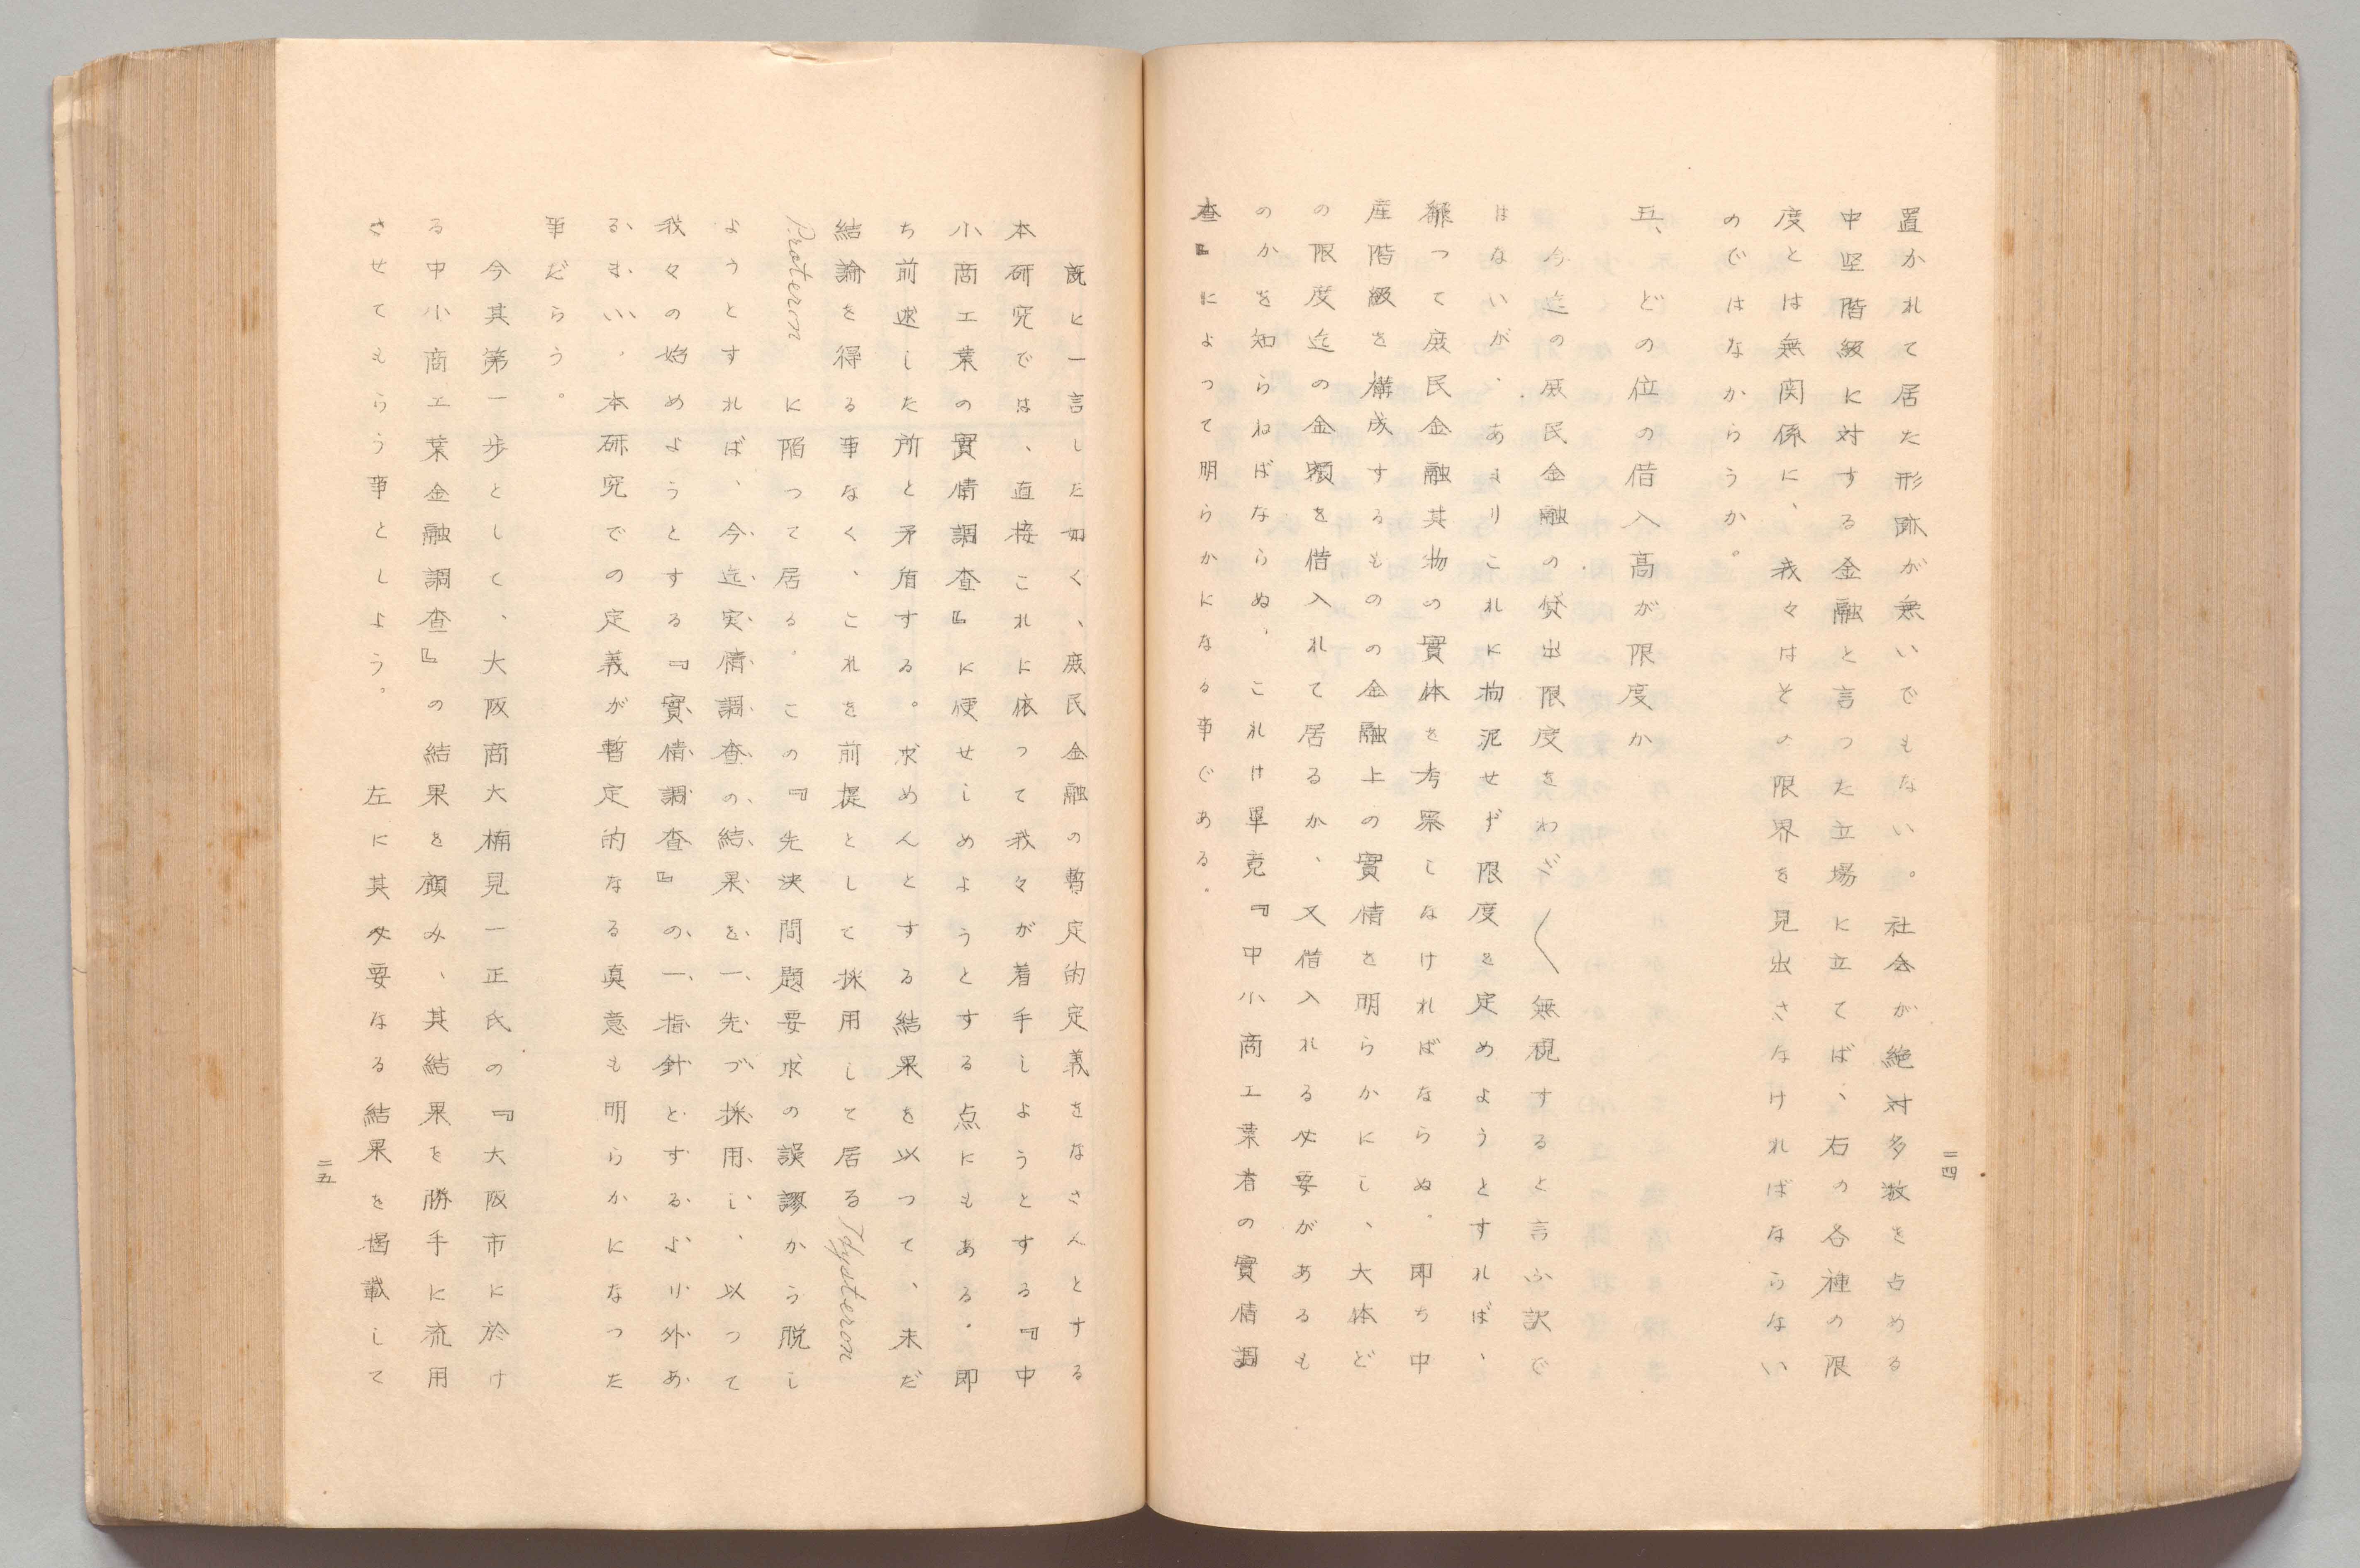 置かれて居た形跡が無いでもない。社会が絶対多数を占める
中堅階級に対する金融と言った立場に立てば、右の各種の限
度とは無関係に、我々はその限界を見出さなければならない
のではなからうか。
五、どの位の借入高が限度か
今迄の庶民金融の貸出限度をわざ〱無視すると言ふ訳で
はないが、あまりこれに拘泥せず限度を定めようとすれば、
飜って庶民金融其物の實体を考察しなければならぬ。即ち中
産階級を構成するものの金融上の實情を明らかにし、大体ど
の限度迄の金額を借入れて居るか、又借入れる必要があるも
のかを知らねばならぬ、これは畢竟『中小商工業者の實情調
査』によって明らかになる事である。
二四
既に一言した如く、庶民金融の暫定的定義をなさんとする
本研究では、直接これに依って我々が着手しようとする『中
小商工業の實情調査』に便せしめようとする点にもある。即
ち前述した所と矛盾する。求めんとする結果を以って、未だ
結論を得る事なく、これを前提として採用して居る Hysteron
Proteron に陥って居る。この『先決問題要求の誤謬から脱し
ようとすれば、今迄実情調査の結果を一先づ採用し、以って
我々の始めようとする『實情調査』の一指針とするより外あ
るまい。本研究での定義が暫定的なる真意も明らかになった
事だらう。
今其第一歩として、大阪商大楠見一正氏の『大阪市に於け
る中小商工業金融調査』の結果を顧み、其結果を勝手に流用
させてもらう事としよう。左に其必要なる結果を掲載して
二五